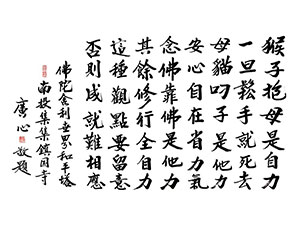 猴子抱母是自力
一旦鬆手就死去
母貓叼子是他力
安心自在省力氣
念佛靠佛是他力
其餘修行全自力
這種觀點要留意
否則成就難相應
佛陀舍利世界和平塔
南投集集鎮国寺
廣心敬題